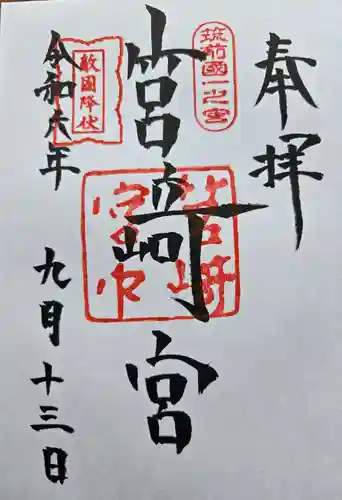 奉拝
筑前國一之宮
筥﨑宮
筥崎
宮印
敵國降伏
令和六年
九月十三日